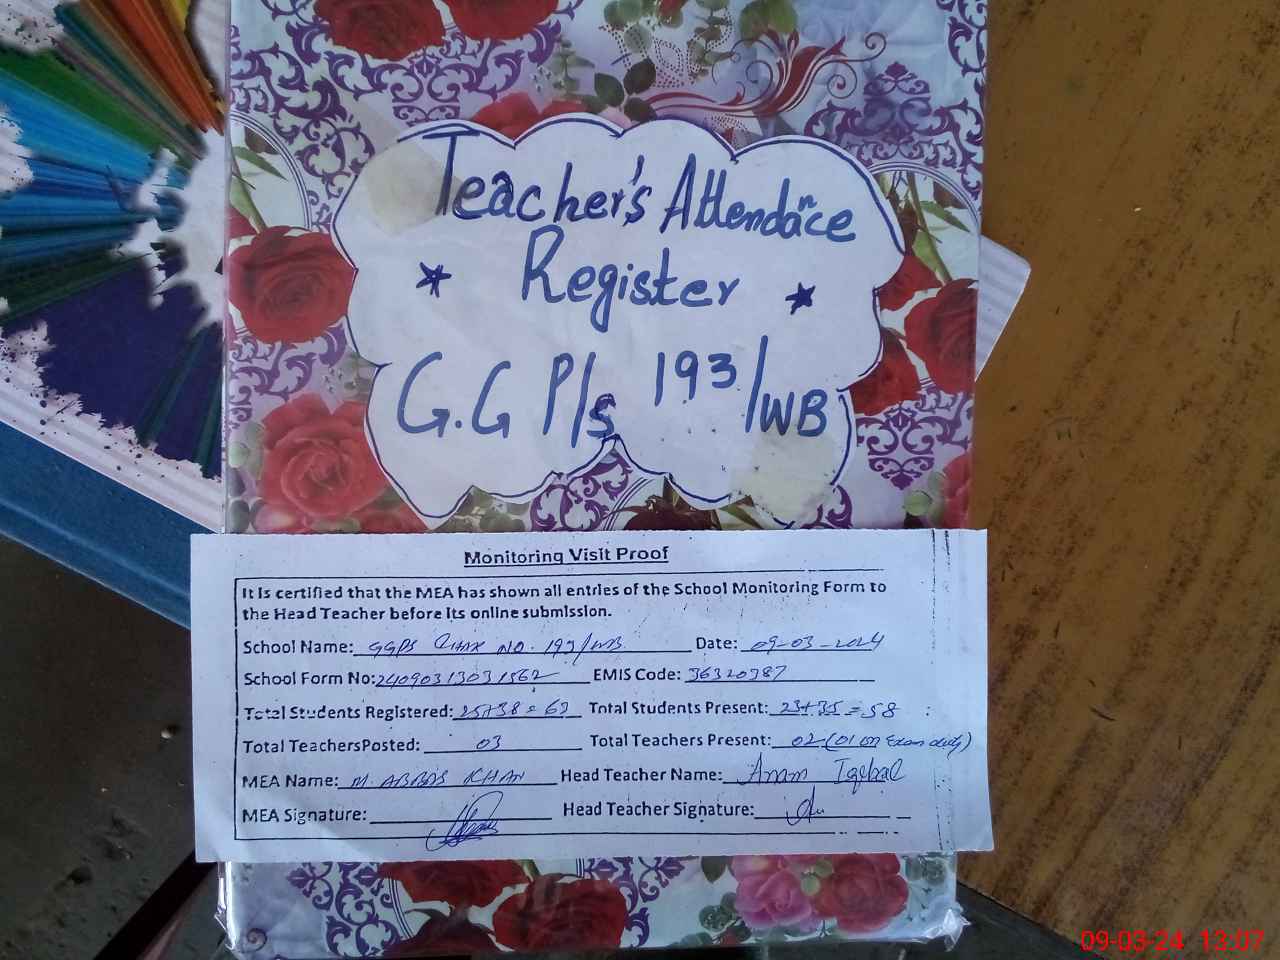 Teacher's Attendance
Register
G.G P/s 193/WB
Monitoring Visit Proof
It is certified that the MEA has shown all entries of the School Monitoring Form to
the Head Teacher before its online submission.
School Name: GGPS Chak No. 193/WB Date: 09-03-2024
School Form No: EMIS Code: 36320387
Total Students Registered: Total Students Present: 23+35=58
Total TeachersPosted: 03 Total Teachers Present: 02 (01 on Exam duty)
MEA Name: M. ABBAS KHAN Head Teacher Name: Anam Iqbal
MEA Signature: Head Teacher Signature:
09-03-24 13:07